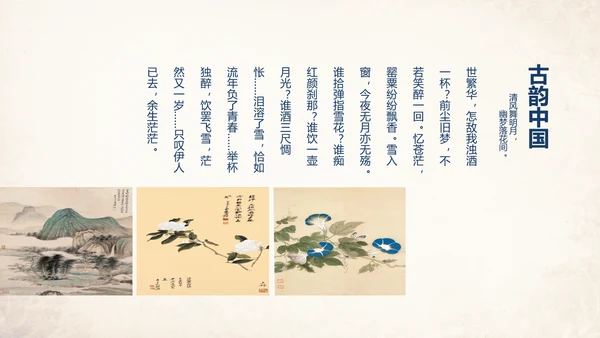 古韵中国
清风舞明月，
幽梦落花间。
世繁华，怎敌我浊酒
一杯？前尘旧梦，不
若笑醉一回。忆苍茫，
罂粟纷纷飘香。雪入
窗，今夜无月亦无殇。
谁拾弹指雪花？谁痴
红颜刹那？谁饮一壶
月光？谁酒三尺惆
怅……泪溶了雪，恰如
流年负了青春……举杯
独醉，饮罢飞雪，茫
然又一岁……只叹伊人
已去，余生茫茫。